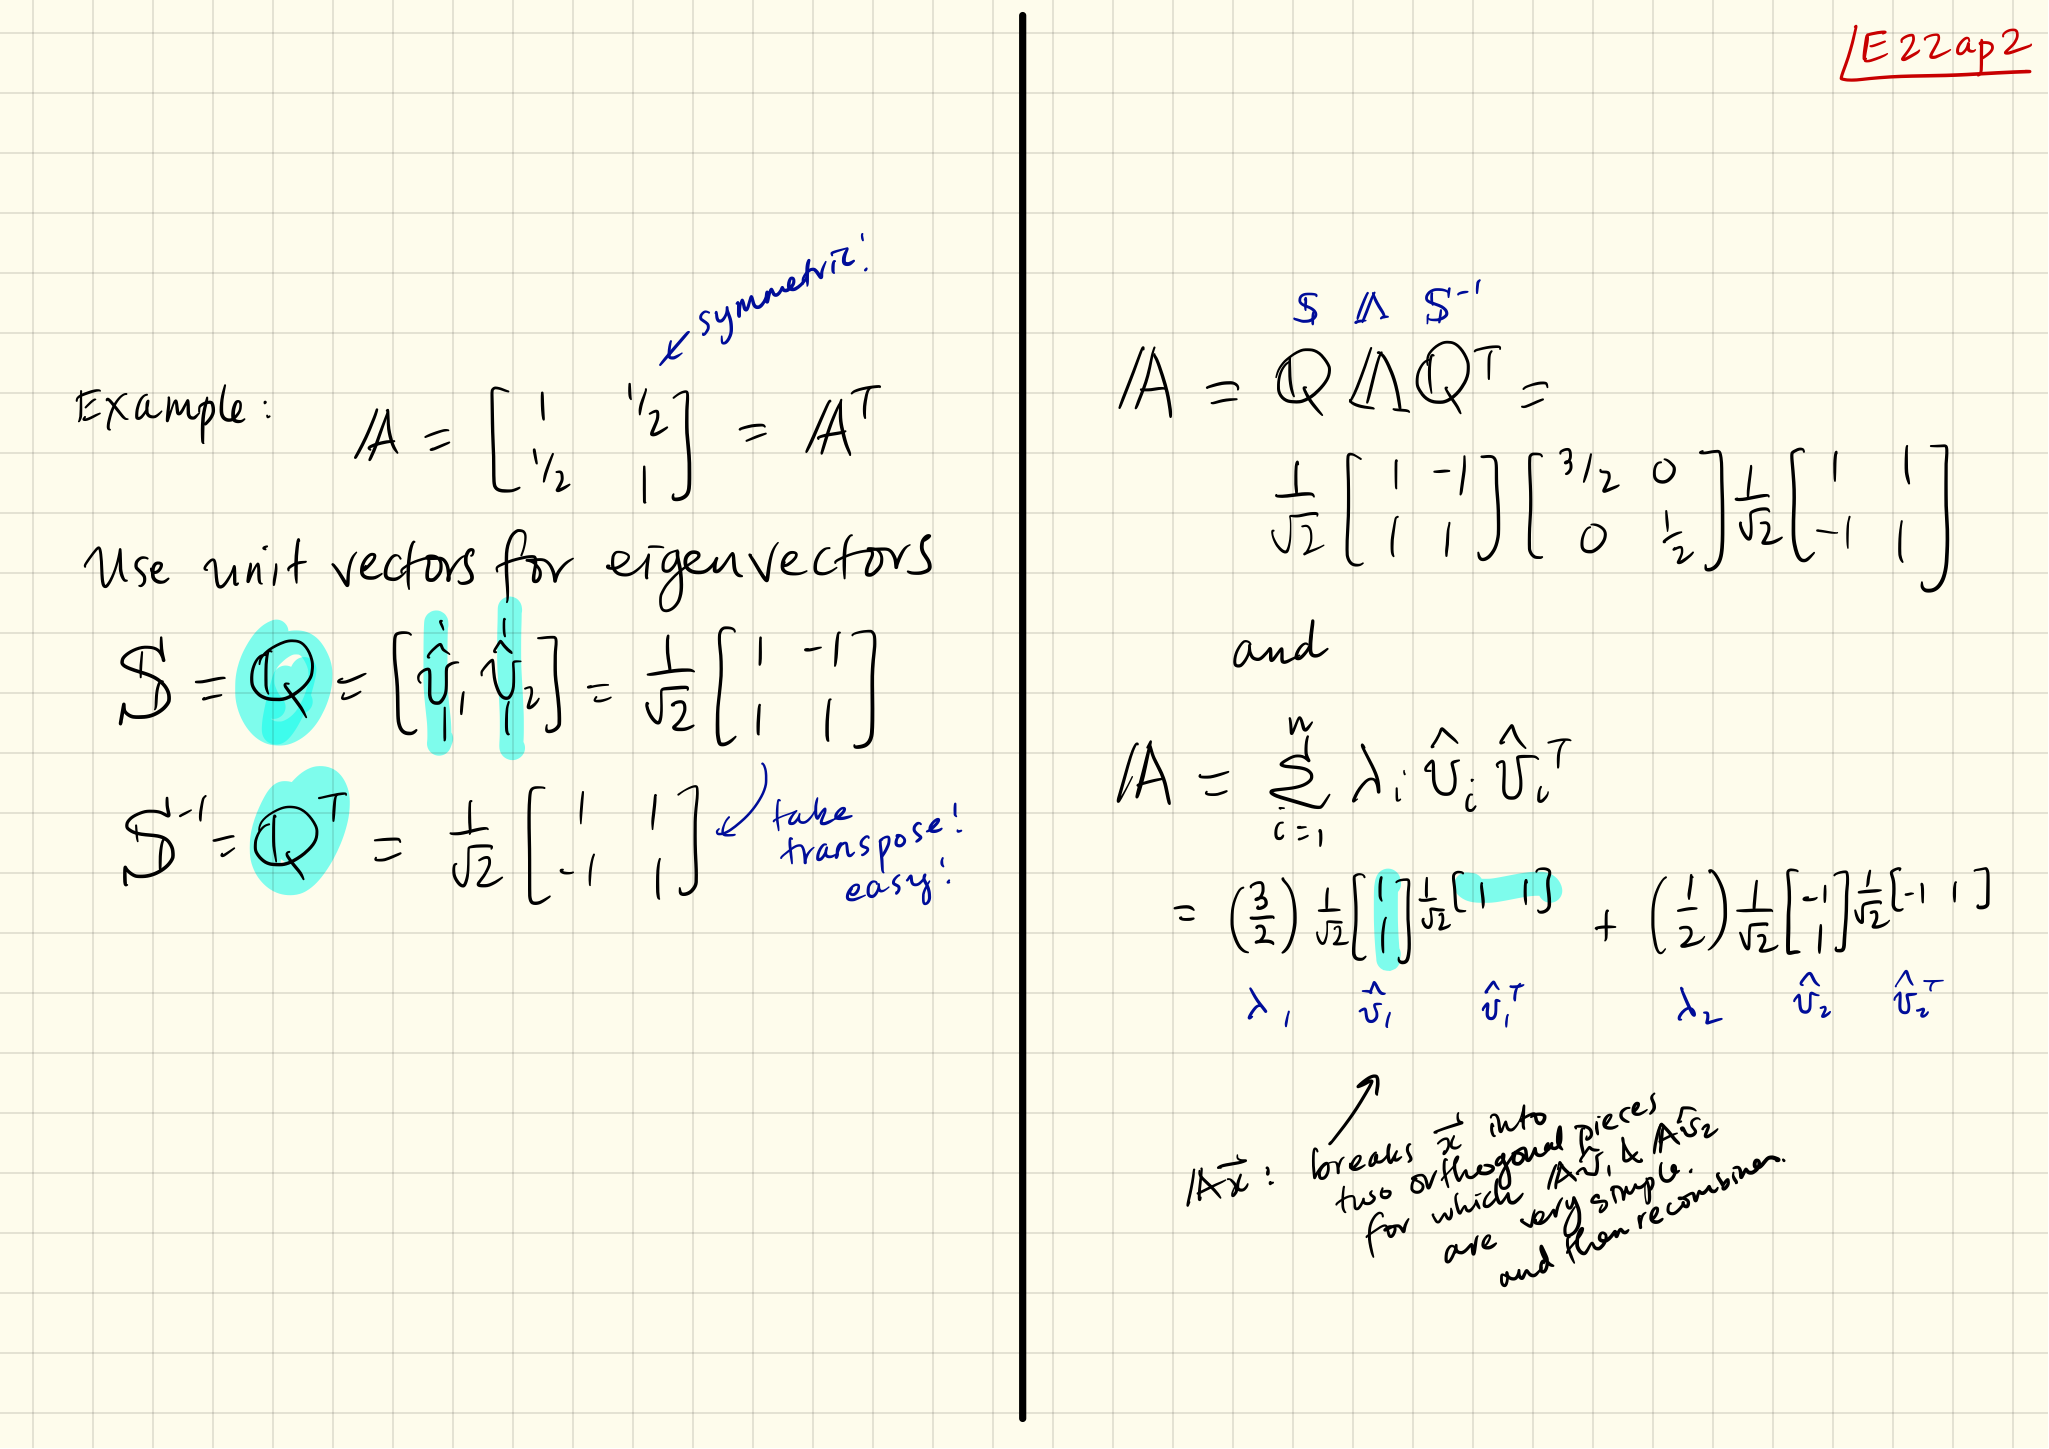 E22ap2
symmetric!
Example: 𝔸 = [1 1/2; 1/2 1] = 𝔸ᵀ
Use unit vectors for eigenvectors
𝕊 = ℚ = [v̂₁ v̂₂] = 1/√2 [1 -1; 1 1]
𝕊⁻¹ = ℚᵀ = 1/√2 [1 1; -1 1]
take
transpose!
easy!
𝕊 Λ 𝕊⁻¹
𝔸 = ℚ Λ ℚᵀ =
1/√2 [1 -1; 1 1] [3/2 0; 0 1/2] 1/√2 [1 1; -1 1]
and
𝔸 = Σᵢ₌₁ⁿ λᵢ v̂ᵢ v̂ᵢᵀ
= (3/2) 1/√2 [1; 1] 1/√2 [1 1] + (1/2) 1/√2 [-1; 1] 1/√2 [-1 1]
λ₁ v̂₁ v̂₁ᵀ λ₂ v̂₂ v̂₂ᵀ
𝔸x⃗: breaks x⃗ into
two orthogonal pieces
for which 𝔸v̂₁ & 𝔸v̂₂
are very simple.
and then recombines.